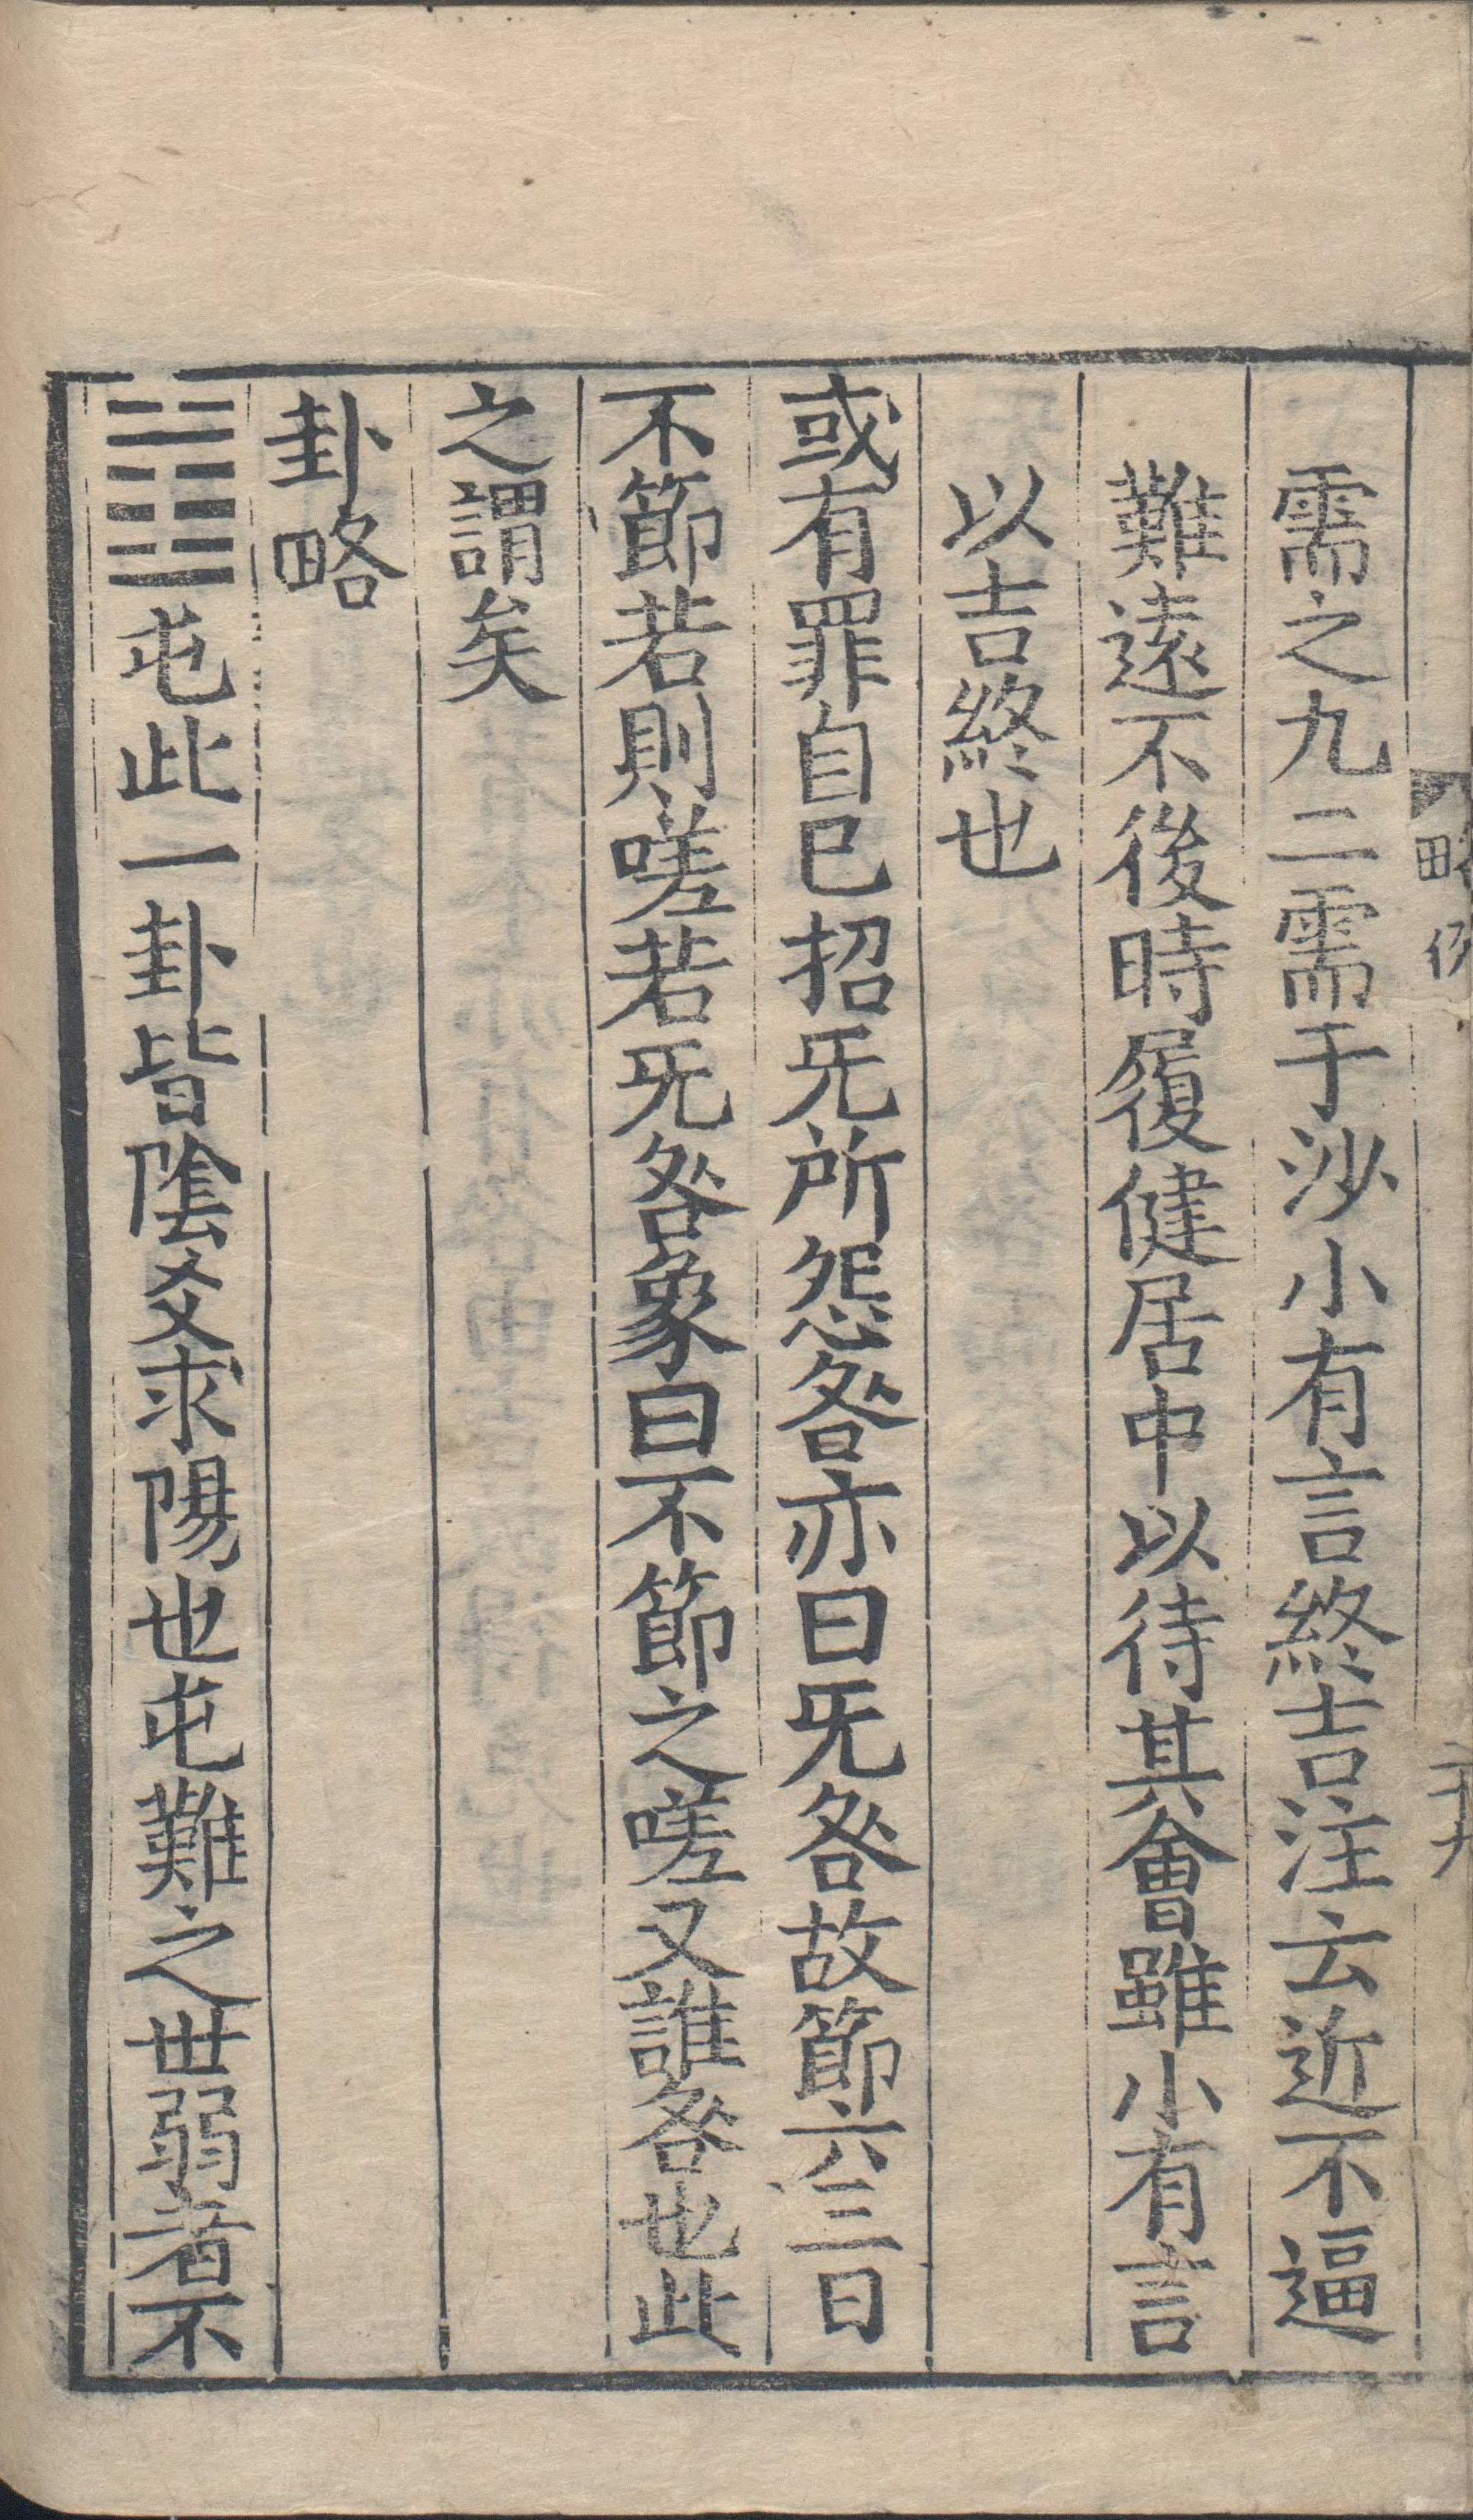 需之九二需于沙小有言終吉注云近不逼
難遠不後時履健居中以待其會雖小有言
以吉終也
或有罪自已招旡所怨咎亦曰旡咎故節六三曰
不節若則嗟若旡咎象曰不節之嗟又誰咎也此
之謂矣
卦略
屯此一卦皆陰爻求陽也屯難之世弱者不